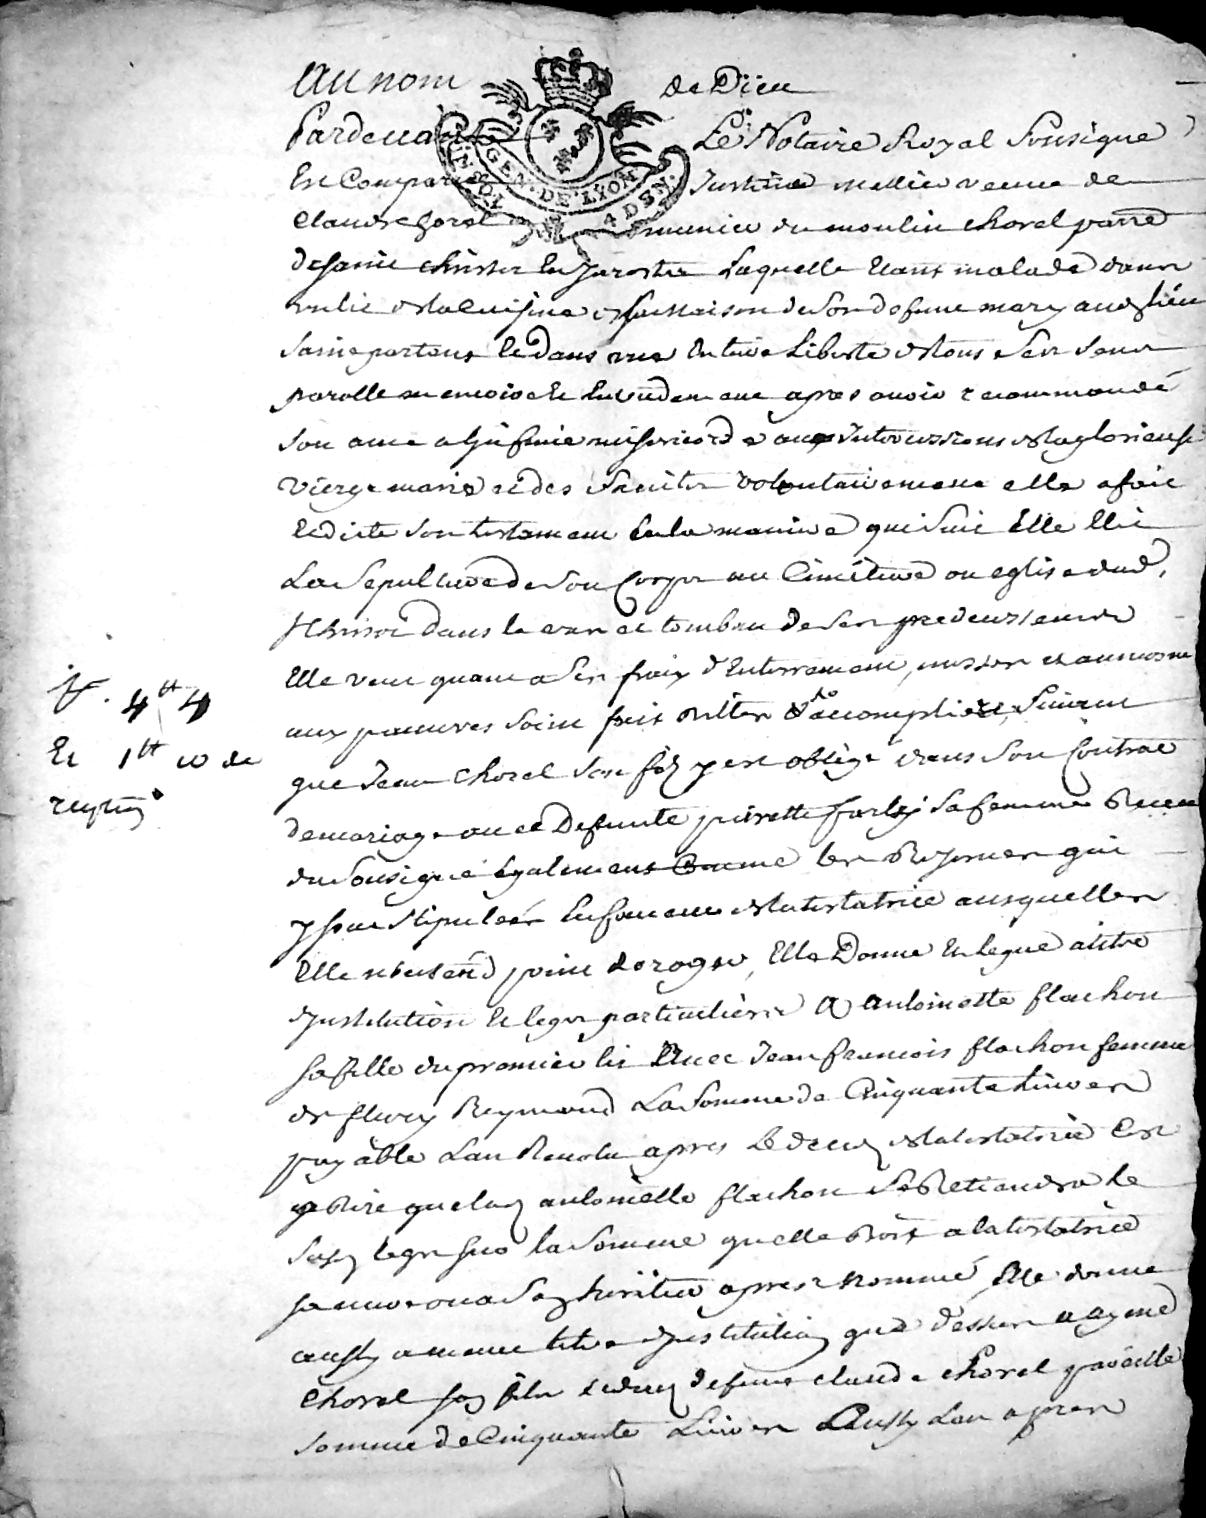 Au nom de Dieu
Pardevant Le Notaire Royal Sousigné
Est Comparue Justine mellier veuve de
Claude chorel munier du moulin chorel parre
de saint christo En Jarestz Laquelle Etant malade dans
un lit de la cuisine de sa maison de son defunt mary aud lieu
saine partout et dans une Entiere Liberté de tous ses sens
parolle memoire et Entendement apres avoir recommandé
son ame a l'infinie misericorde aux intercessions de la glorieuse
vierge marie et des Saints volontairement elle a fait
et dicté son testament En la maniere qui suit Elle Elit
La sepulture de son Corps au Cimetiere ou eglise dud.
St Christo dans la vas et tombeau de ses predecesseurs
Elle veut quant a ses fraix d'Enterrement, messes et aumosne
aux pauvres soint fait et accomplies, suivant
que Jean Chorel son fils y est obligé dans son Contrat
de mariage avec Defunte pierrette farley sa femme Receu
du sousigné également les Reserves qui
y sont stipulées En faveur de la testatrice ausquelles
elle n'entend point deroger, Elle Donne et legue a titre
d'institution et legs particuliere a antoinette flachon
sa fille du premier lit avec Jean francois flachon femme
de fleury Reymond La somme de Cinquante Livres
payable L'an Revolu apres Le decez de la testatrice C'est
a dire que lad antoinette flachon se Retiendra le
susd legs sur la somme quelle doit a la testatrice
sa mere ou a son heritier apres nommé, Elle donne
aussy a meme titre d'institution que dessus a aymé
Chorel son fils et dud defunt claude Chorel pareille
somme de Cinquante Livres Aussy L'an apres
4 tt 4
Et 1 tt 10 de
GEN. DE LYON
4 DEN.